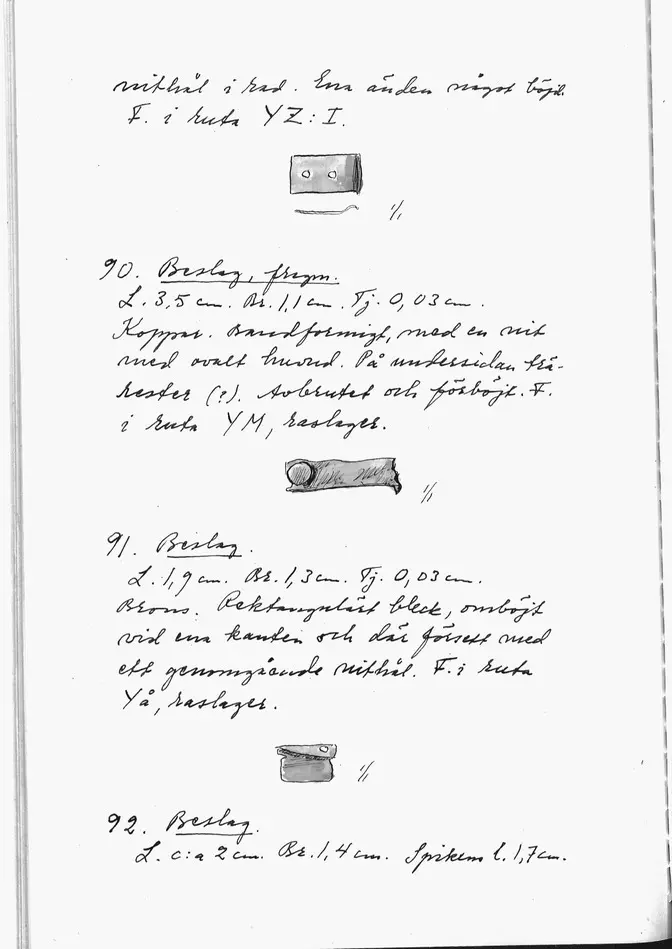 nithål i rad. Ena änden något böjd.
F. i ruta YZ: I.
1/1
90. Beslag, fragm.
L. 3,5 cm. Br. 1,1 cm. Tj. 0,03 cm.
Koppar. Bandformigt, med en nit
med ovalt huvud. På undersidan trä-
rester (?). Avbrutet och förböjt. F.
i ruta YM, raslager.
1/1
91. Beslag.
L. 1,9 cm. Br. 1,3 cm. Tj. 0,03 cm.
Brons. Rektangulärt bleck, omböjt
vid ena kanten och där försett med
ett genomgående nithål. F. i ruta
YÅ, raslager.
1/1
92. Beslag.
L. c:a 2 cm. Br. 1,4 cm. Spikens l. 1,7 cm.